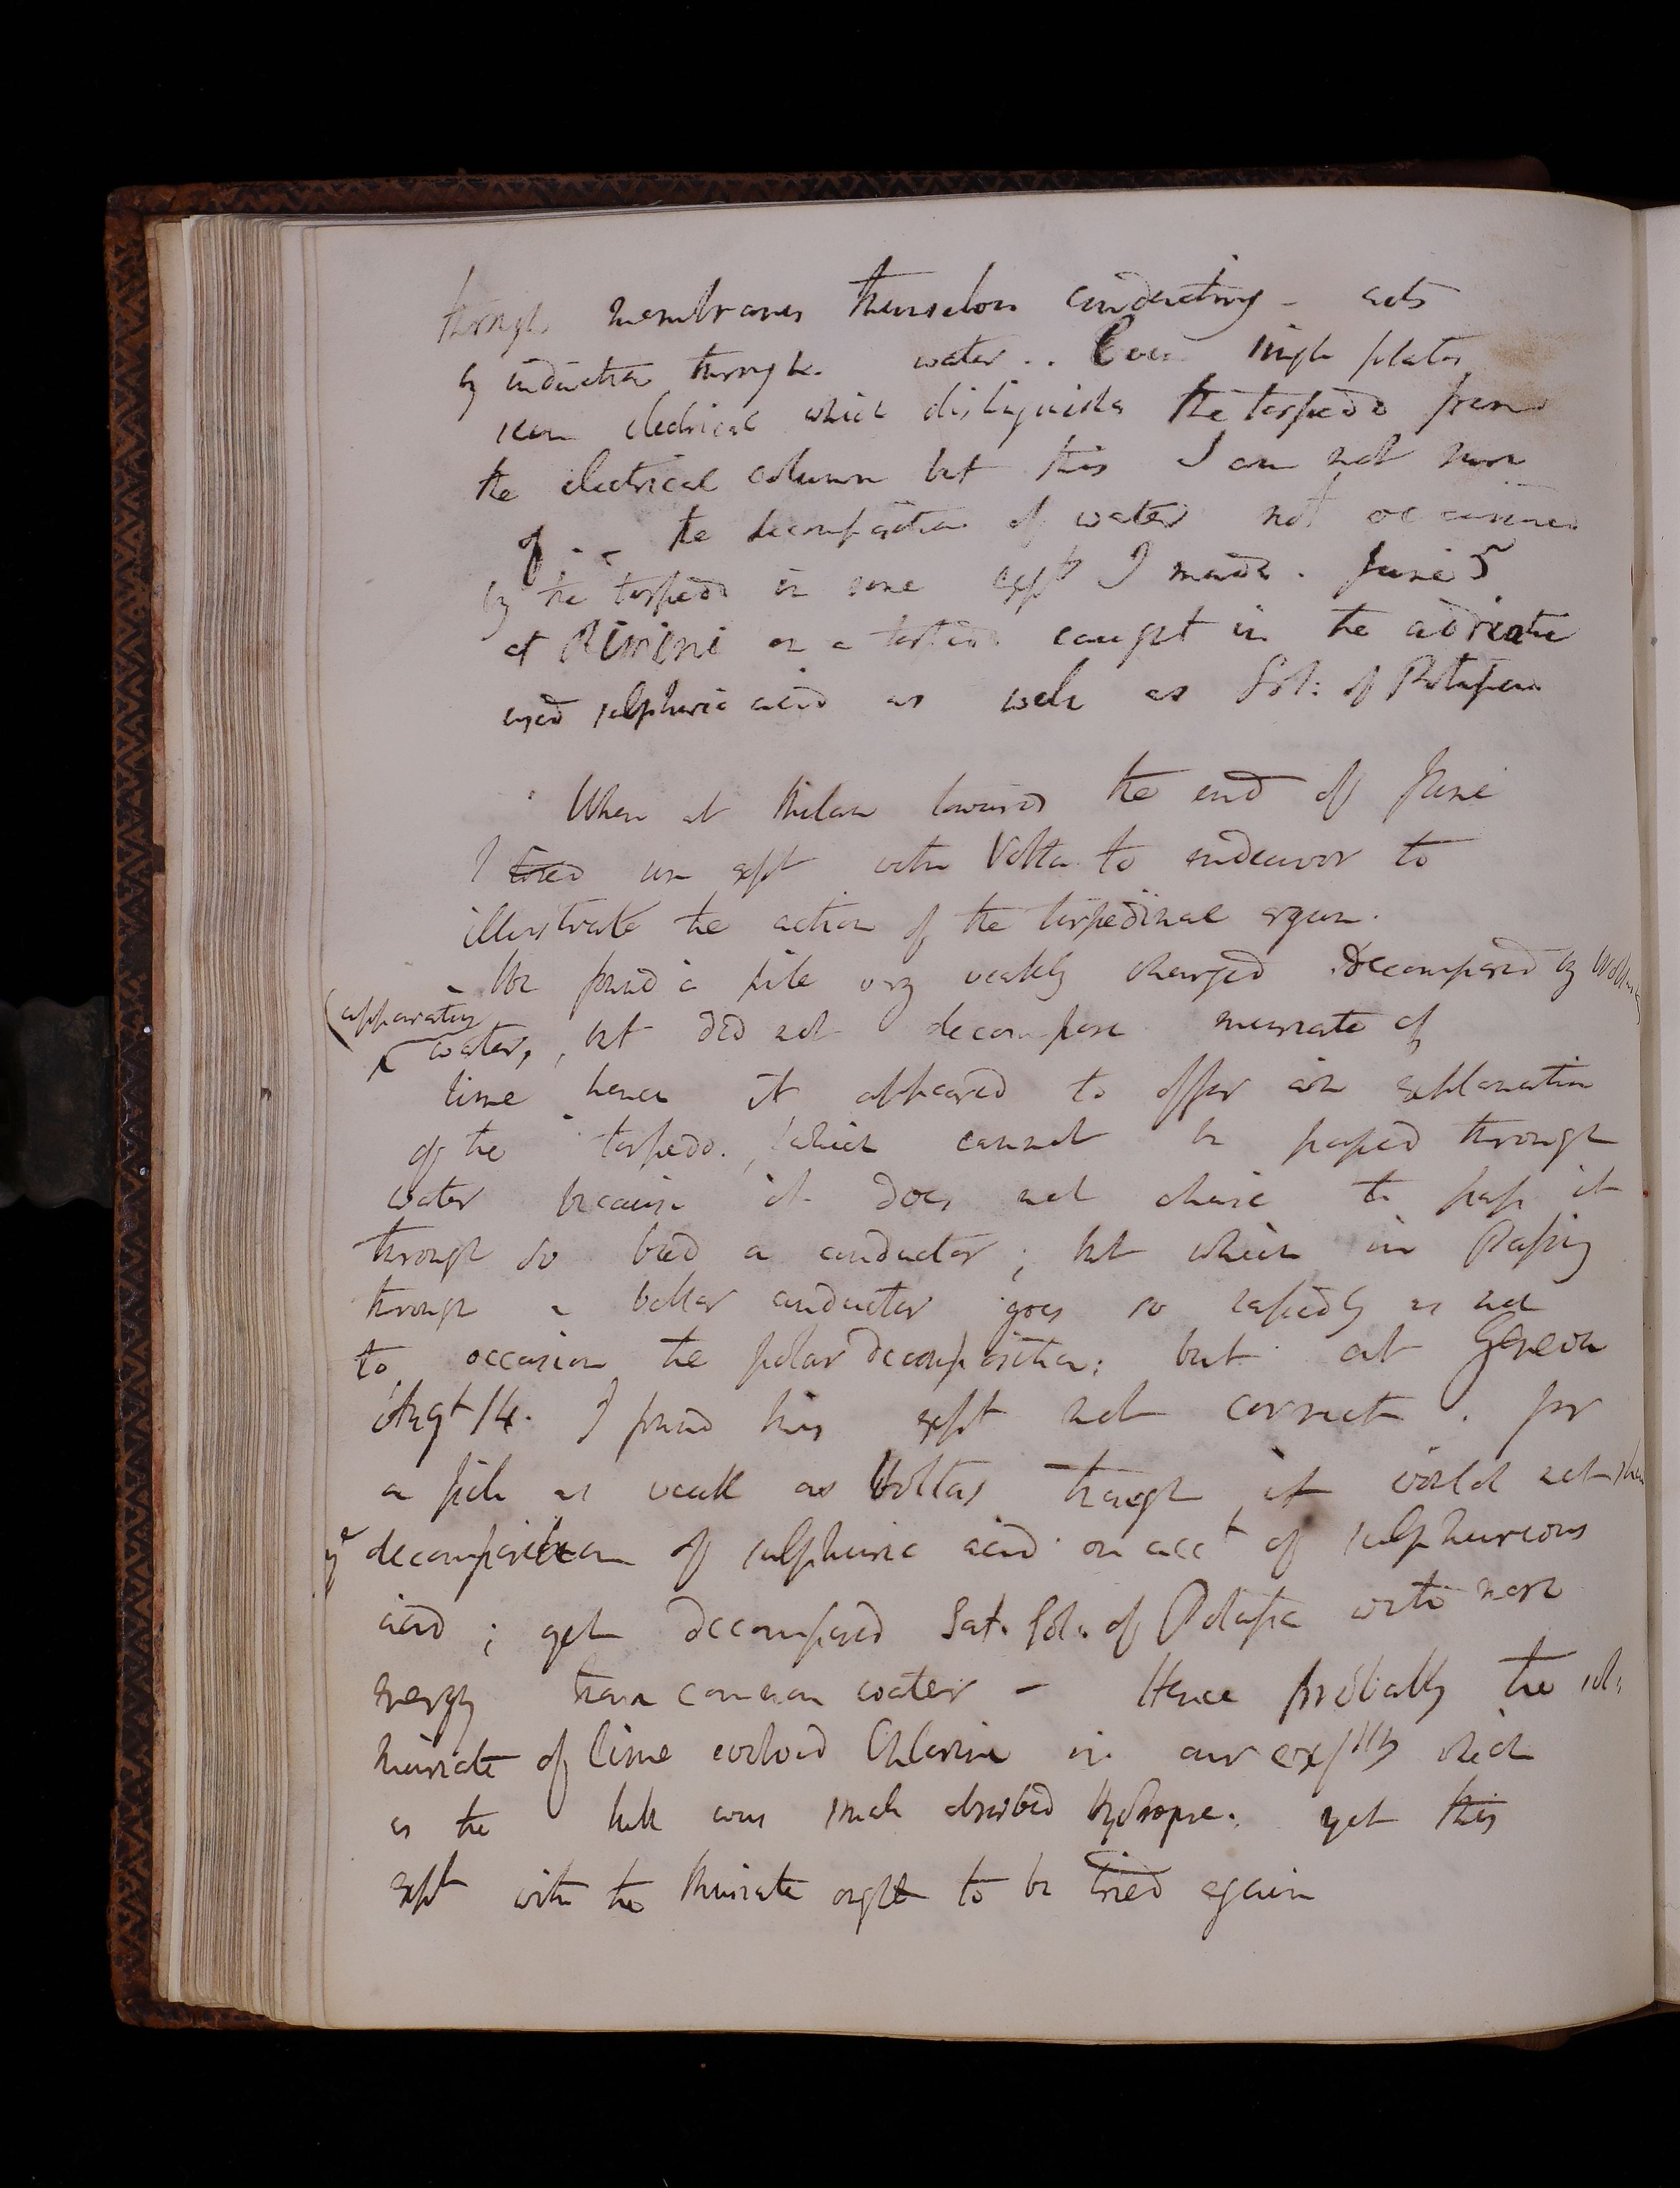 through membranes themselves conducting - acts
by induction through water .. Even single plates
seem electrical which distinguishes the torpedo from
the electrical column but this I am not sure
of - - the decomposition of water not occasioned
by the torpedo in some expts I made. June 5
at Rimini on a torpedo caught in the adriatic
used sulphuric acid as well as Sol: of Potassa
When at Milan towards the end of June
I tried an expt with Volta to endeavor to
illustrate the action of the torpedinal organ.
- We found a pile very weakly charged decomposed by
(apparatus
water, but did not decompose muriate of
lime hence it appeared to offer an explanation
of the torpedo. which cannot be passed through
water because it does not chuse to pass it
through so bad a conductor; but which in Passing
through a better conductor goes so rapidly as not
to occasion the polar decomposition: but at Geneva
Augt 14. I found this expt not correct. for
a pile as weak as Voltas though it would not shew
ye decomposition of sulphuric acid on acct of sulphureous
acid; yet decomposed Sat. Sol: of Potassa with more
energy than common water - Hence probably the sol:
muriate of lime evolved Chlorine in our expts which
as the was small absorbed Hydrogene. yet this
expt with the Muriate ought to be tried again